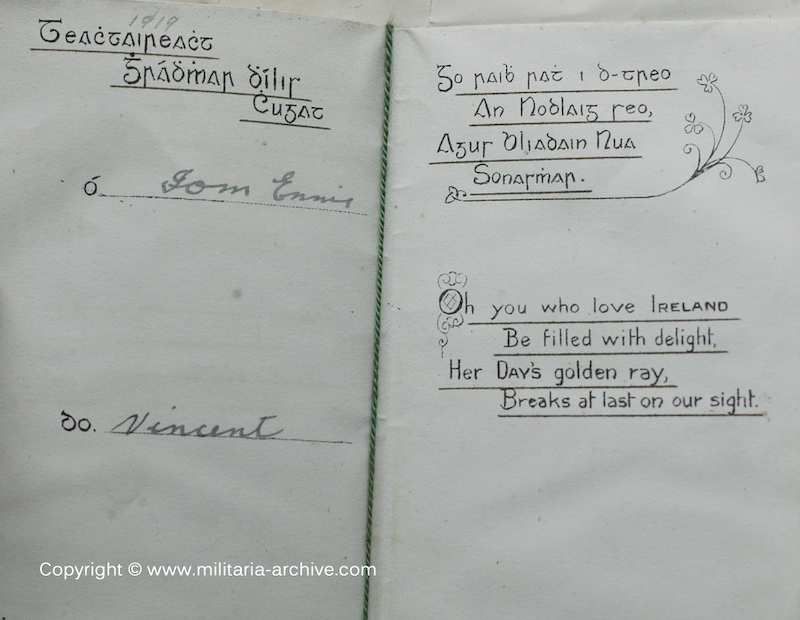 1919
Teaċtaireaċt
Ġráḋṁar ḋílis
Ċugat
ó Tom Ennis
do. Vincent
Go raiḃ raṫ i d-treo
An Nodlaig seo,
Agus Bliaḋain Nua
Ṡonasṁar.
Oh you who love IRELAND
Be filled with delight,
Her DAY'S golden ray,
Breaks at last on our sight.
Copyright © www.militaria-archive.com